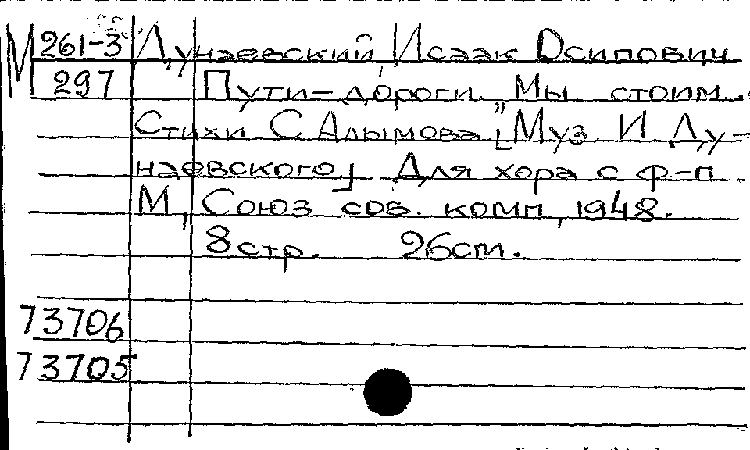 М 261-3 Дунаевский, Исаак Осипович
297 Пути-дороги. "Мы стоим..."
Стихи С. Алымова. [Муз. И. Ду-
наевского] Для хора с ф-п.
М., Союз сов. комп., 1948.
8 стр. 26 cm.
73706
73705